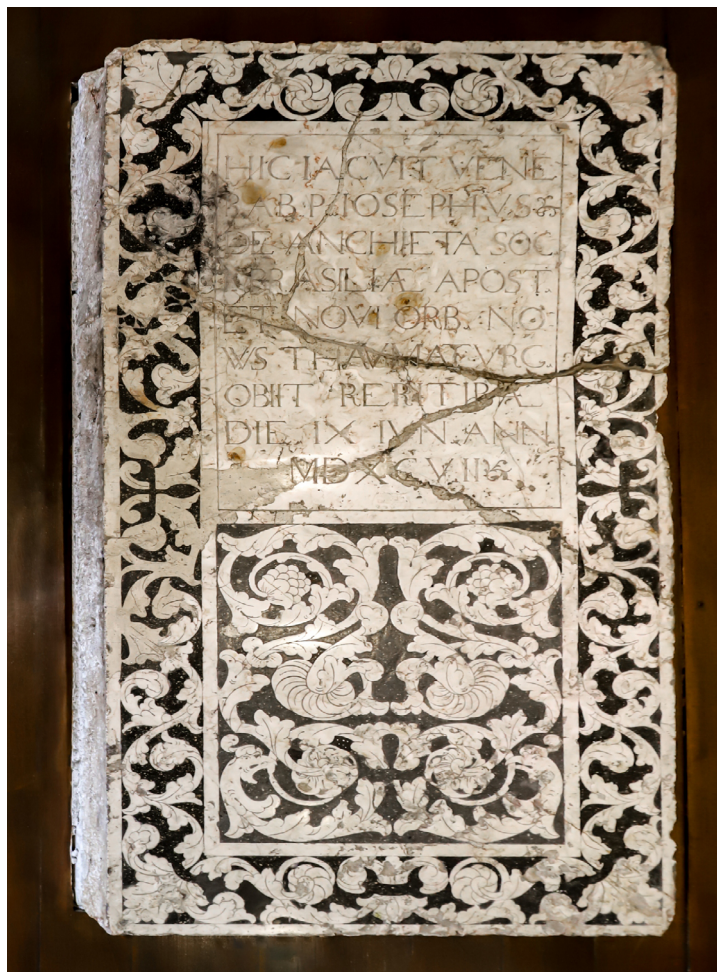 HIC IACVIT VENE
RAB. P. IOSEPHVS
DE ANCHIETA SOC.
BRASILIÆ APOST.
ET NOVI ORB. NO
VVS THAVMATVRG.
OBIIT RERITIBÆ
DIE IX IVN. ANN.
MDXCVII